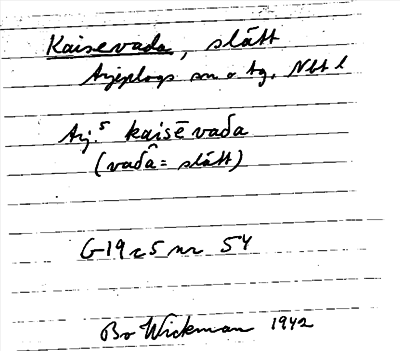 Kaisevada, slått
Arjeplogs sn o tg, Nbt l
Arj.s kaisēvaδa
(vaδâ = slått)
G19 c5 nr 54
Bo Wickman 1942